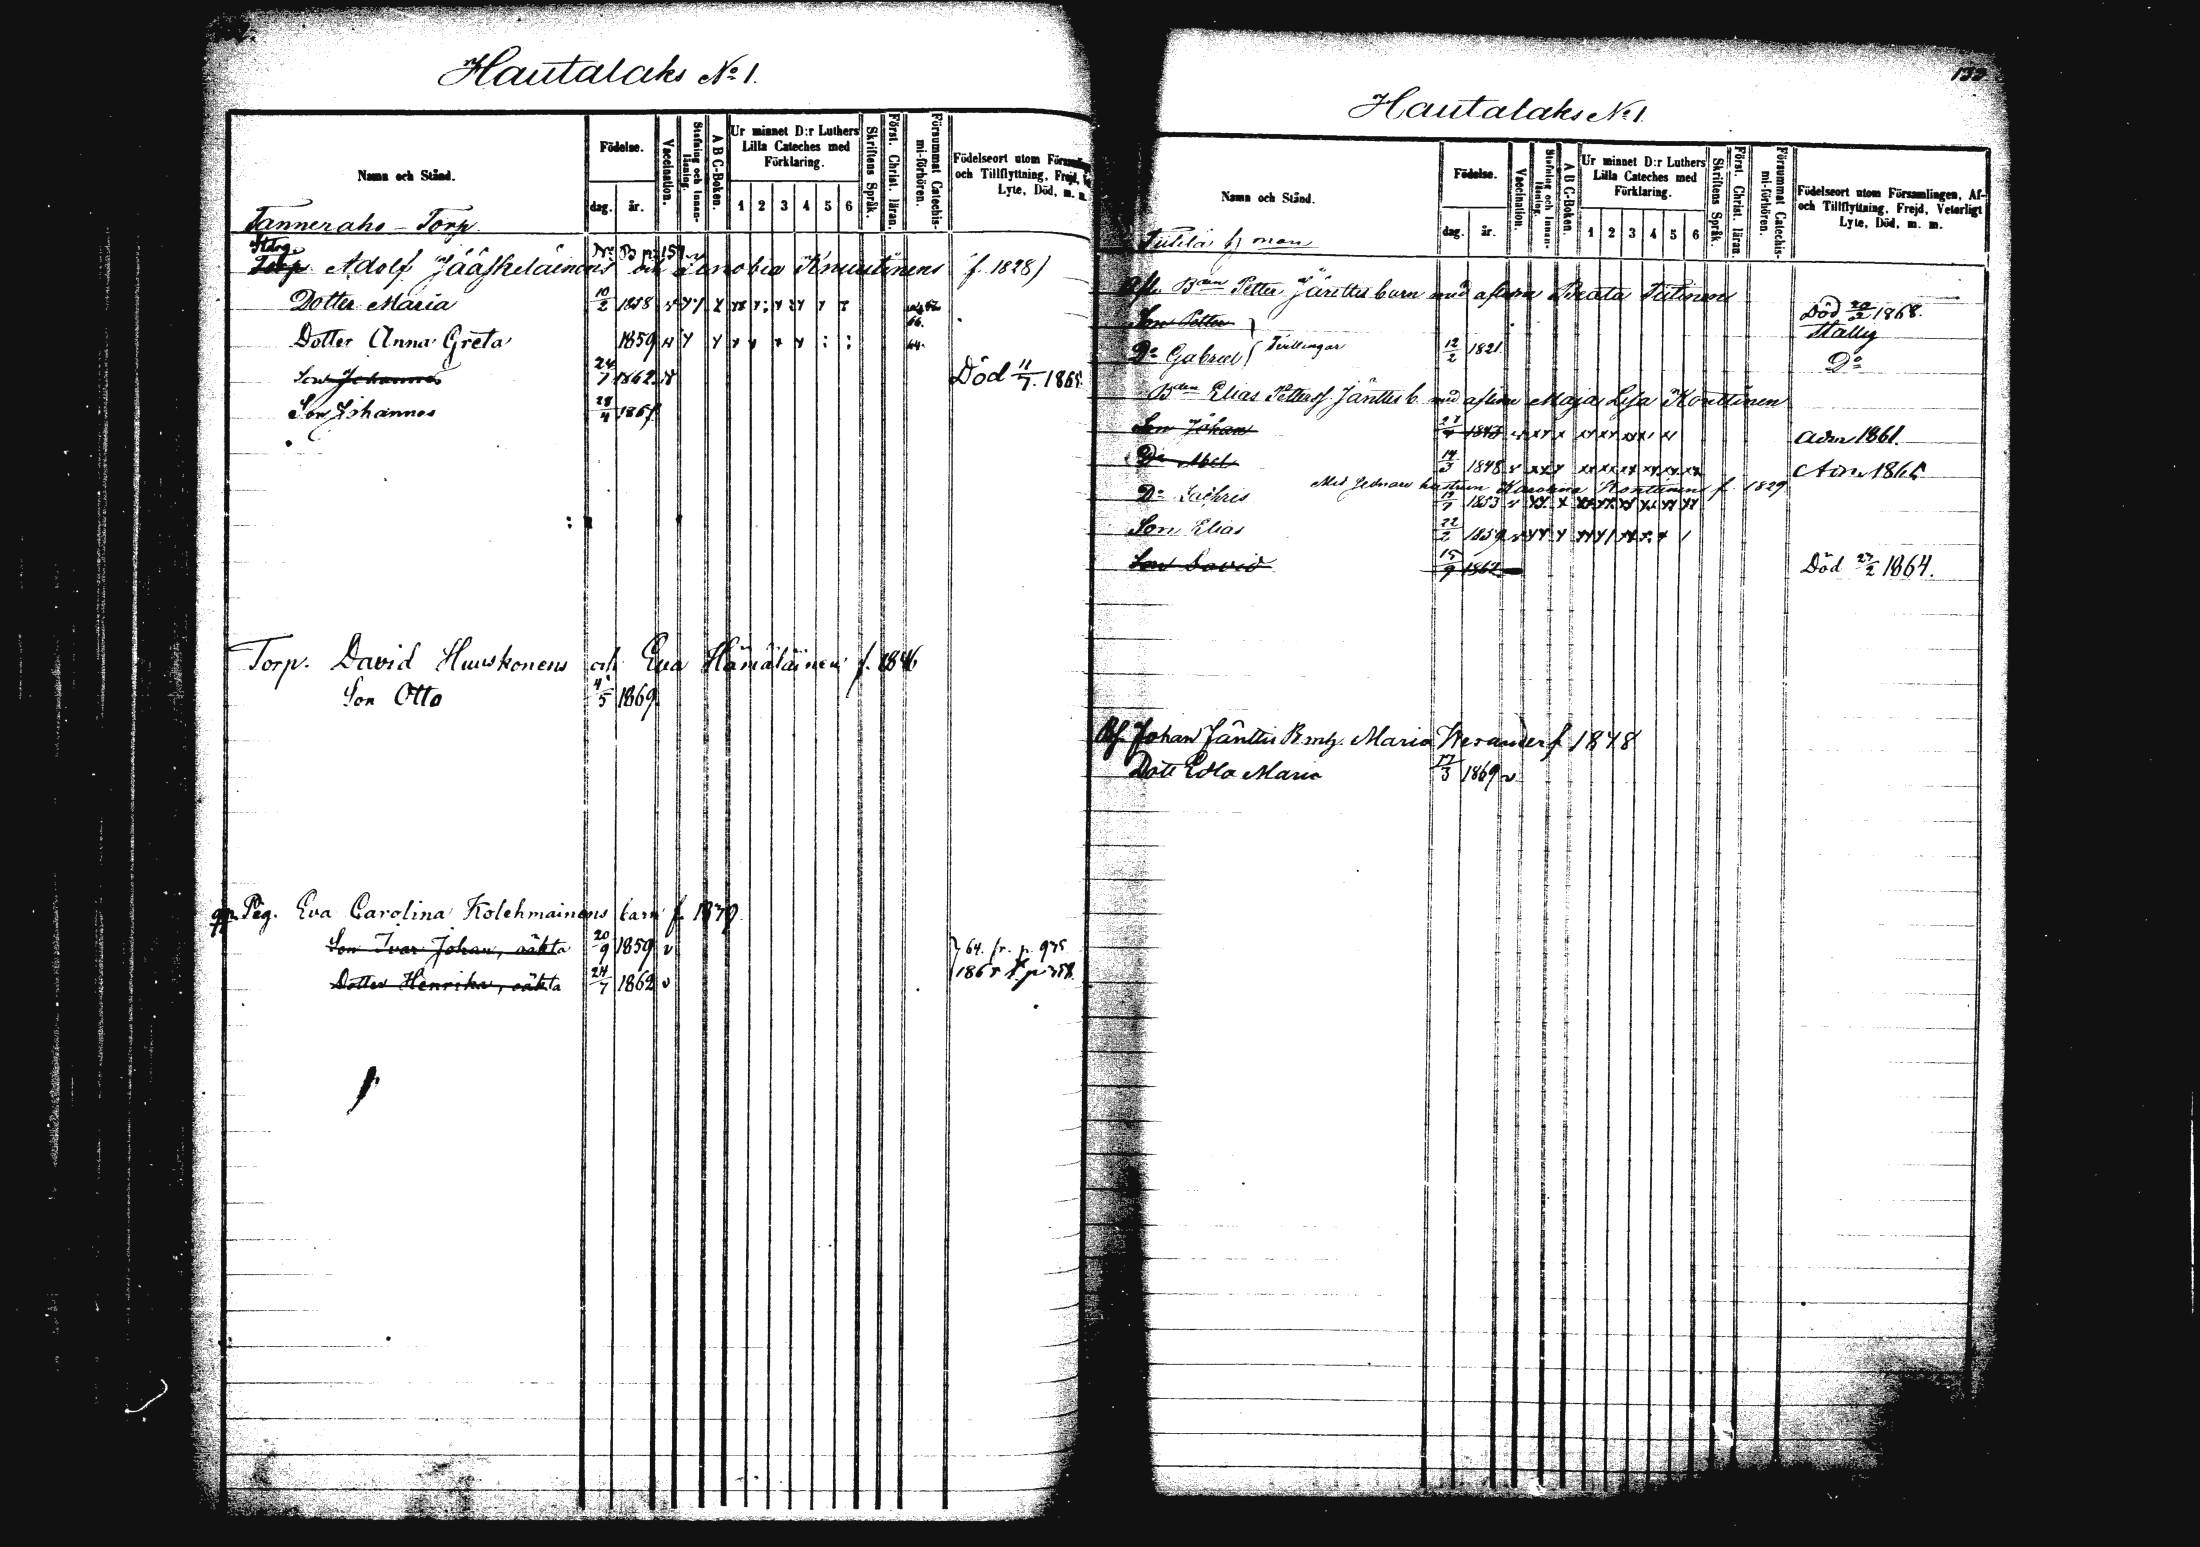 Hautalaks No 1.
Namn och Stånd.
Födelse.
dag. år.
Vaccination.
Stafning och Innan-läsning.
A B C-Boken.
Ur minnet D:r Luthers Lilla Cateches med Förklaring.
1 2 3 4 5 6
Skriftens Språk.
Först. Christ. läran.
Försummat Catechis-mi-förhören.
Födelseort utom
och Tillflyttning, Frejd,
Lyte, Död, m. m.
Tanneraho - Torp
Torp. Adolf Jääskeläinens och Zenobia Knuutinens (f. 1828)
Dotter Maria 10/2 1858
Dotter Anna Greta 1859
Son Johannes 24/7 1862 Död 11/7 1865
Son Johannes 28/4 1865
Torp. David Huuskonens och Eva Hämäläinen f. 1846
Son Otto 4/5 1869
Pig. Eva Carolina Kolehmainens barn f.
Son Ivar Johan, oäkta 20/9 1859 v 64. fr. p. 975
Dotter Henrika, oäkta 24/7 1862 v 1865 t. p 758
132
Hautalaks No 1
Namn och Stånd.
Födelse.
dag. år.
Vaccination.
Stafning och Innan-läsning.
A B C-Boken.
Ur minnet D:r Luthers Lilla Cateches med Förklaring.
1 2 3 4 5 6
Skriftens Språk.
Först. Christ. läran.
Försummat Catechis-mi-förhören.
Födelseort utom Församlingen, Af-
och Tillflyttning, Frejd, Veterligt
Lyte, Död, m. m.
Petter Jänttis barn med aflidna Beata Tiitinen
Son Petter Död 20/2 1868.
Do Gabriel Tvillingar 12/2 1821 Do
Bden Elias Petterss. Jänttis b. med aflidna Maja Lisa Konttinen
Son Johan 27/4 1843 Adm 1861.
Do Abel 14/3 1848 Adm 1865
Med sednare hustrun Karolina Konttinen f. 1829
Do Zachris 19/7 1853
Son Elias 22/2 1859
Son David 15/9 1862 Död 27/2 1864.
Johan Jänttis B. m. Maria f 1848
Dott Edla Maria 17/3 1869 v